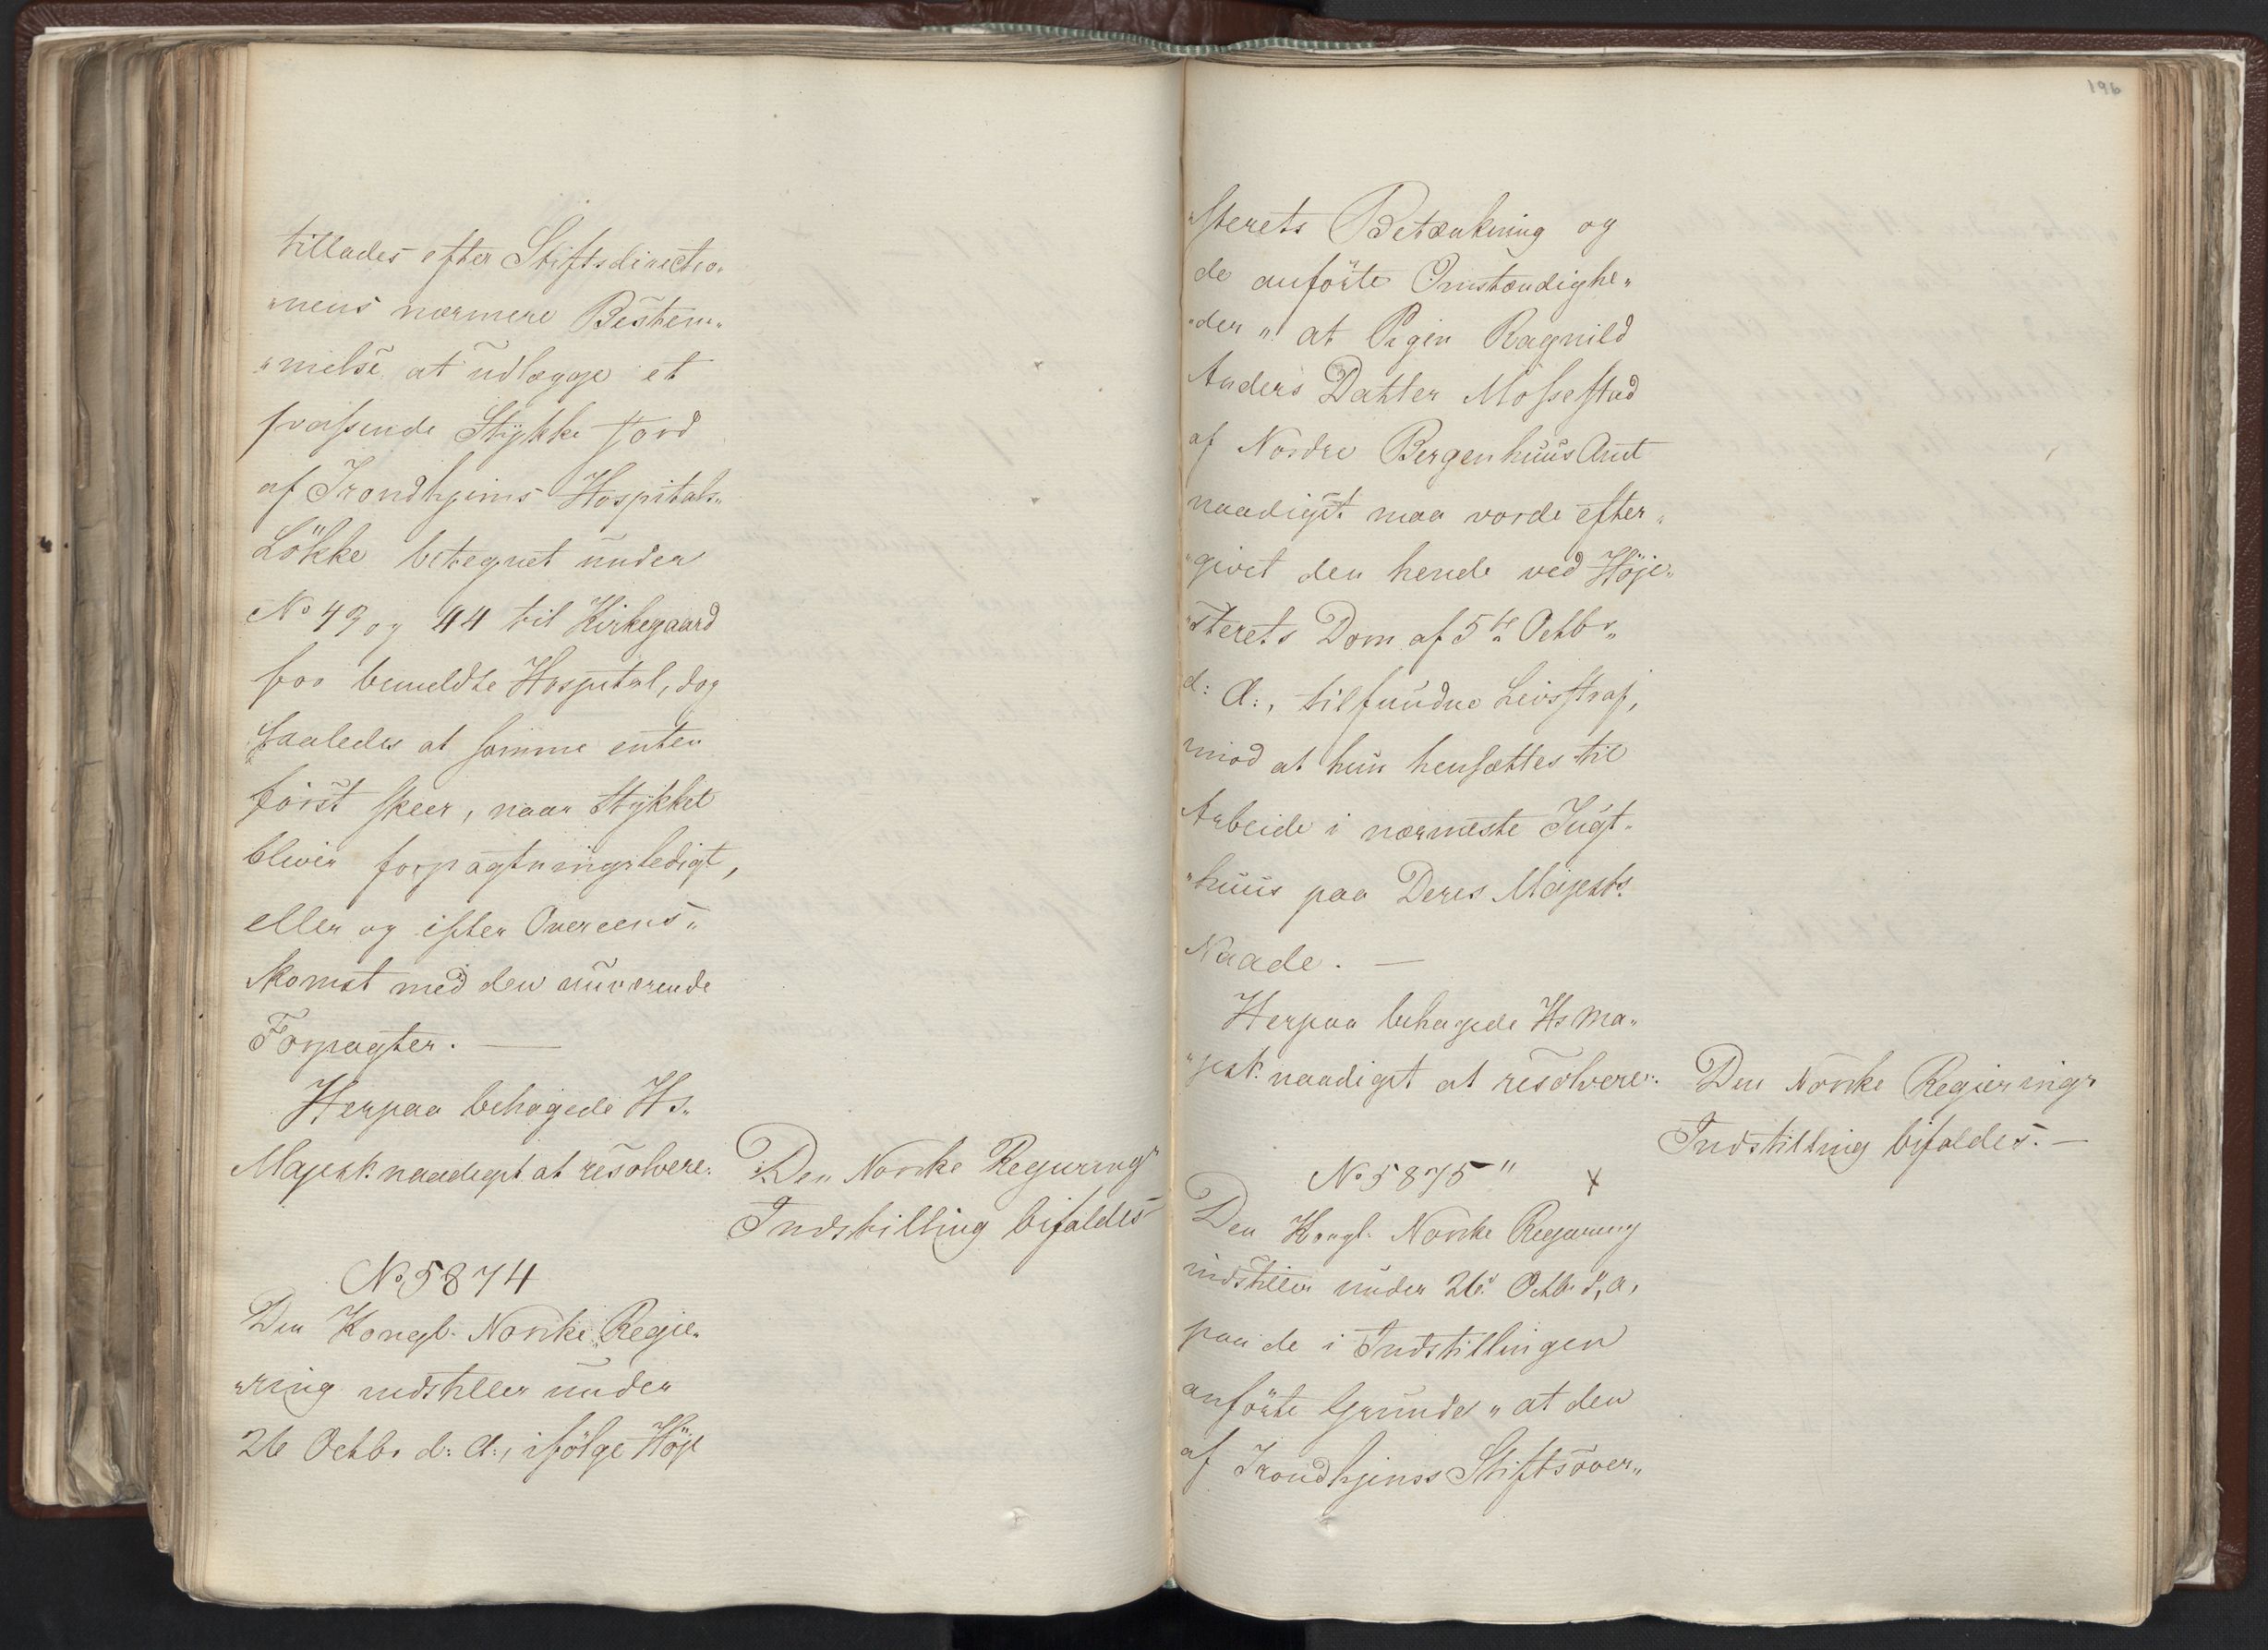 tillades efter Stiftsdirectio„
„nens nærmere Bestem„
„melse at udlægge et
passende Stykke Jord
af Trondhjems Hospitals„
Lökke betegnet under
No 43 og 44 til Kirkegaard
for bemeldte Hospital, dog
saaledes at samme enten
först skeer, naar Stykket
bliver forpagtningsledigt,
eller og efter Overeens„
komst med den nuværende
Forpagter. —
Herpaa behagede Hs.
Majest. naadigst at resolvere:
Den Norske Regjerings
Indstilling bifaldes
No 5874
Den Kongl. Norske Regje„
„ring indstiller under
26 Octbr d: A:, ifölge Höje
196
„sterets Betænkning og
de anförte Omstændighe„
„der „ at Pigen Ragnild
Anders Datter Mossestad
af Nordre Bergenhuus Amt
naadigst maa vorde efter„
„givet den hende ved Höje„
„sterets Dom af 5te Octbr„
d: A:, tilfundne Livsstraf,
mod at hun hensættes til
Arbeide i nærmeste Tugt„
„huus paa Deres Majests
Naade. —
Herpaa behagede Hs Ma„
„jest. naadigst at resolvere:
Den Norske Regjerings
Indstilling bifaldes. —
No 5875 "
x
Den Kongl. Norske Regjering
indstiller under 26 Octbr d, a,
paa de i Indstillingen
anförte Grunde „ at den
af Trondhjems Stiftsover„